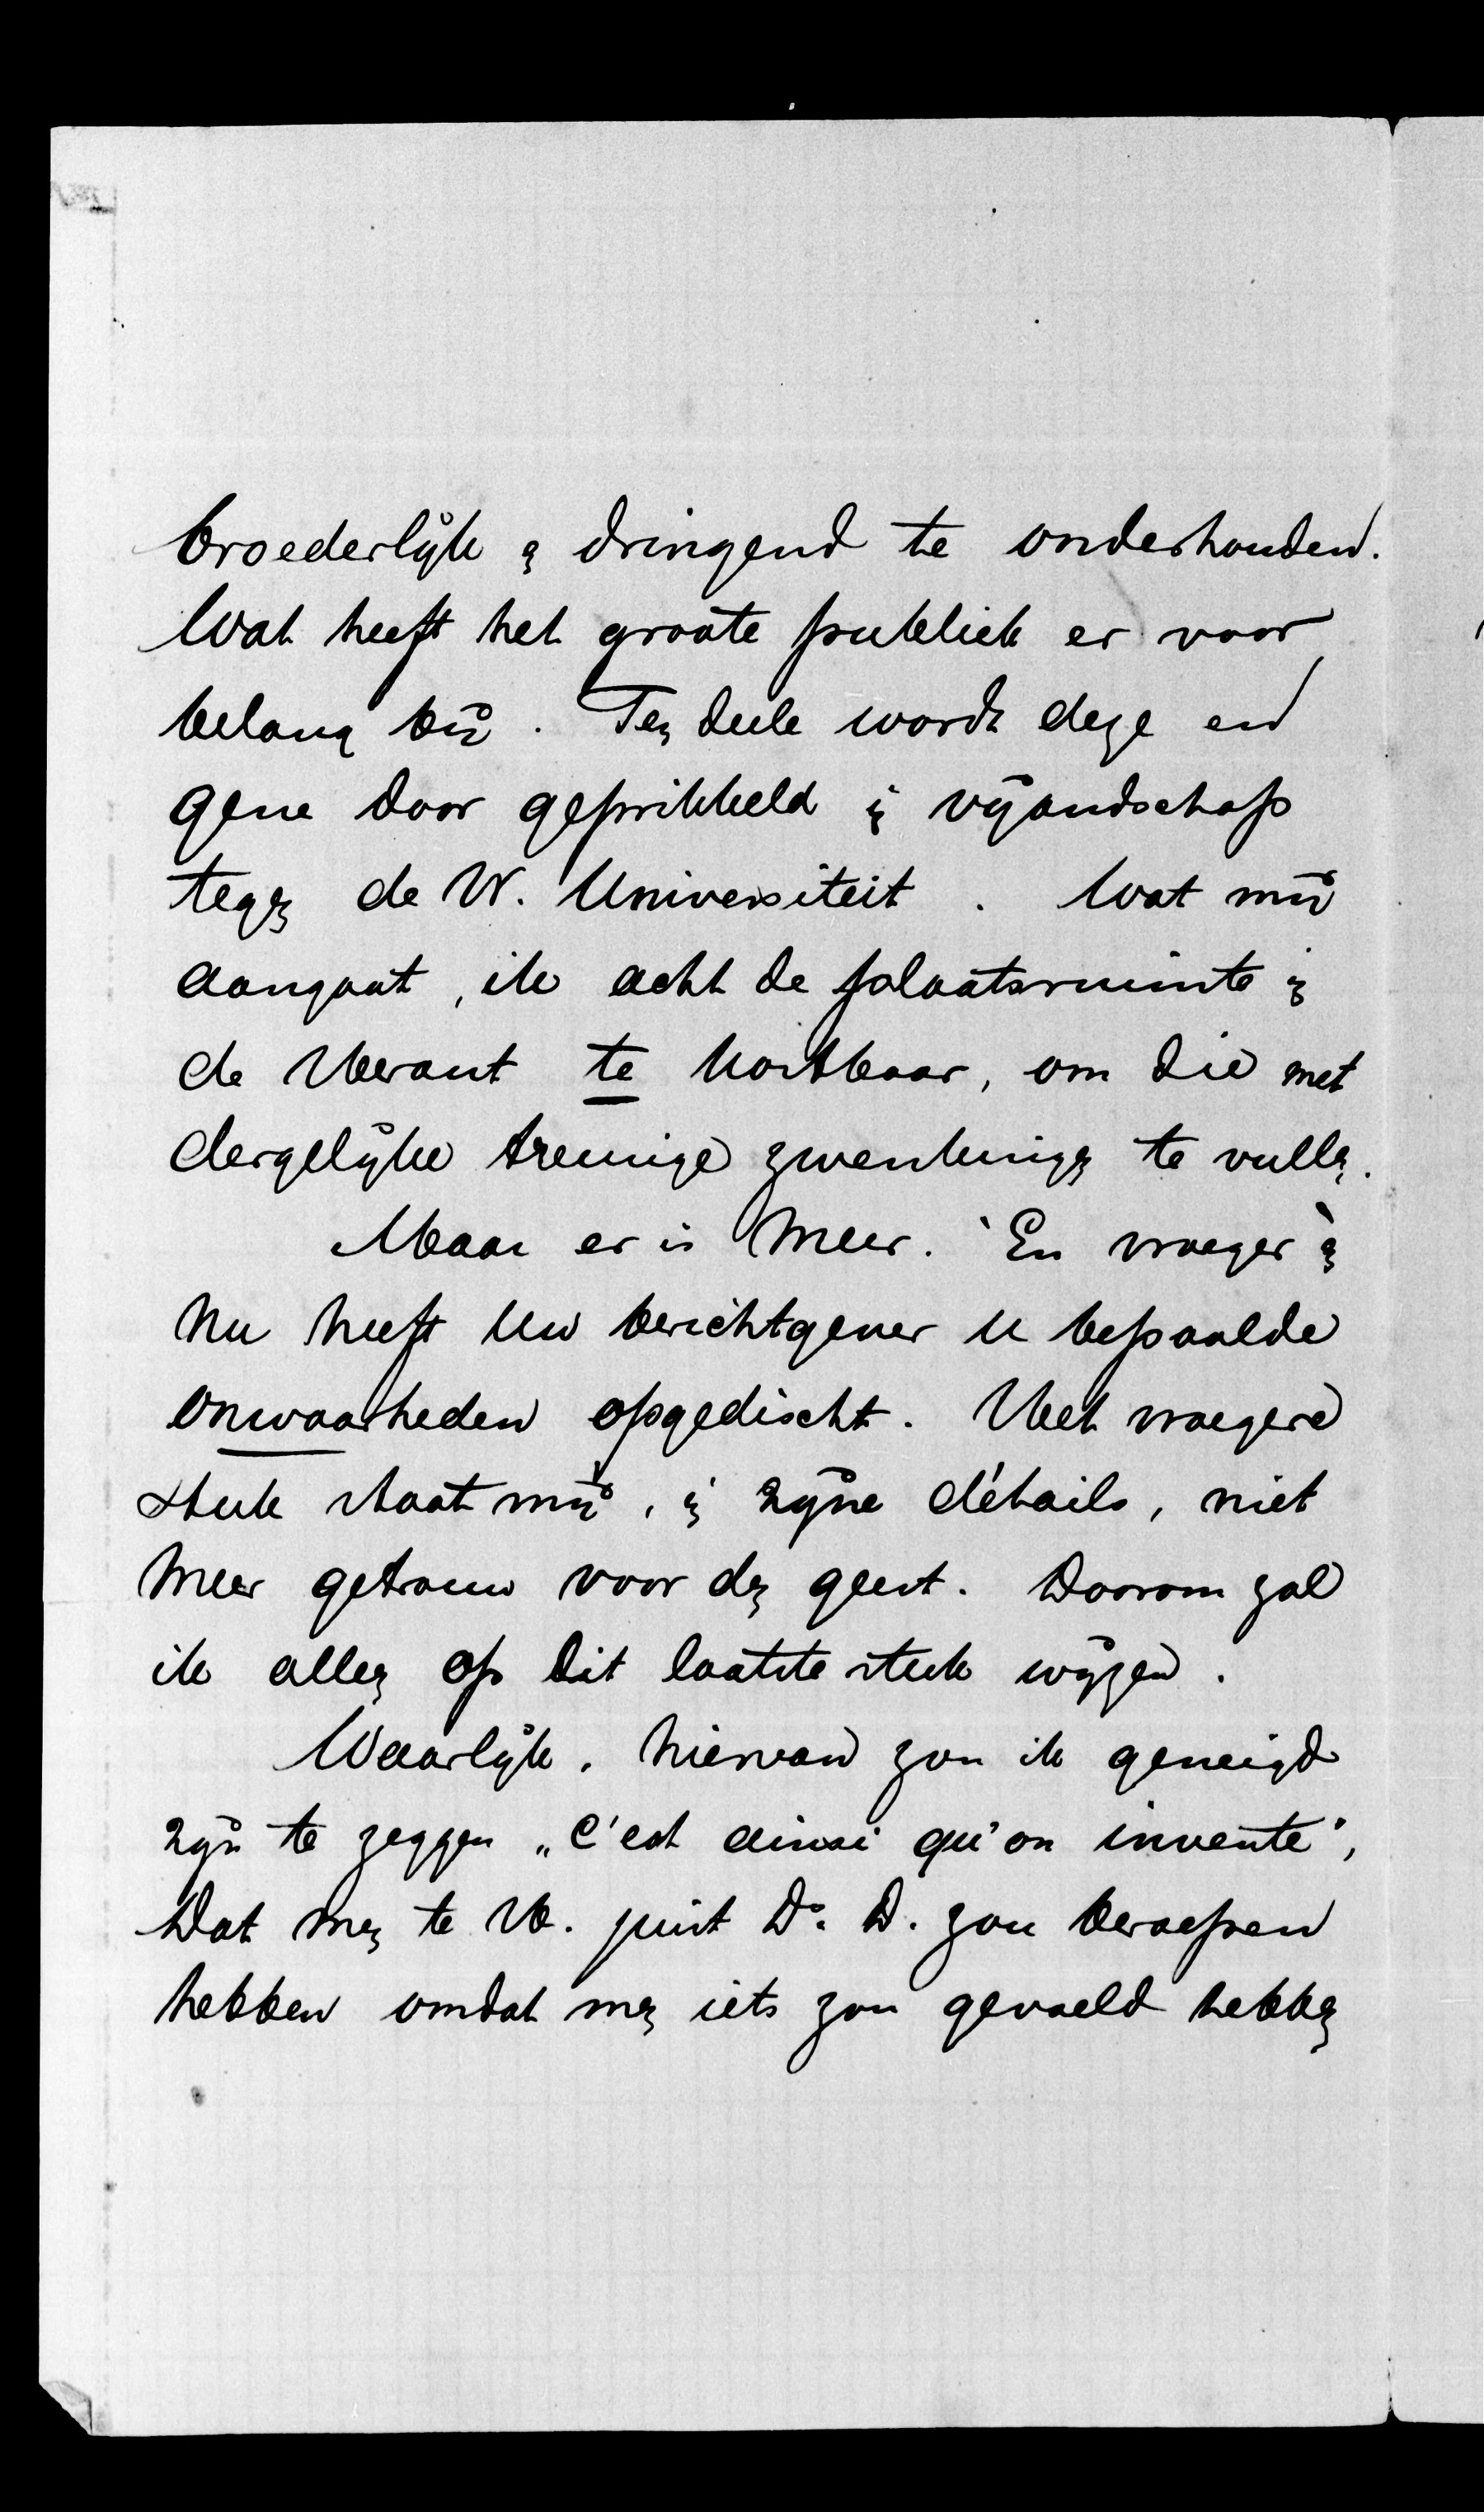 broederlijk en dringend te onderhouden.
Wat heeft het groote publiek er voor
belang bij. Ten deele wordt deze en
gene door geprikkeld in vijandschap
tegen de V. Universiteit. Wat mij
aangaat, ik acht de plaatsruimte in
de Heraut te kostbaar, om die met
dergelijke treurige zwenkingen te vullen.
Maar er is meer. En vroeger èn
nu heeft Uw berichtgever U bepaalde
onwaarheden opgedischt. Het vroegere
stuk staat mij, in zijne détails, niet
meer getrouw voor den geest. Daarom zal
ik alleen op dit laatste stuk wijzen.
Waarlijk, hiervan zou ik geneigd
zijn te zeggen „c'est ainsi qu'on invente",
Dat men te H. juist Ds. D. zou beroepen
hebben omdat men iets zou gevoeld hebben